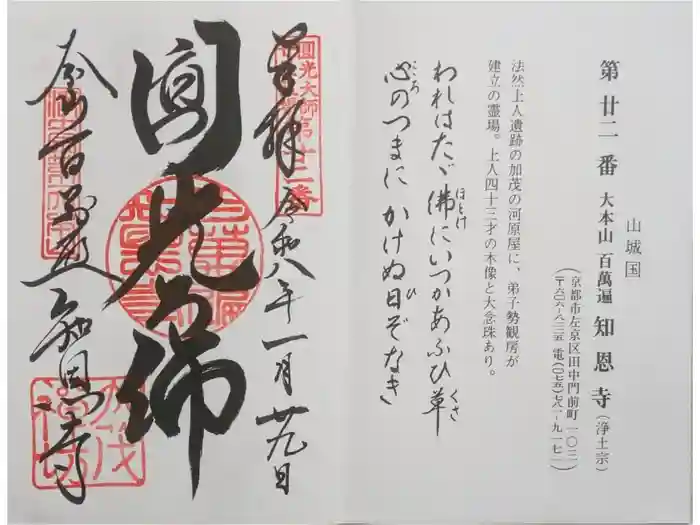 山城国
第廿二番 大本山 百萬遍 知恩寺 (浄土宗)
(京都市左京区田中門前町一〇三
〒六〇六-八三二五 電(〇七五)七八一-九一七一)
法然上人遺跡の加茂の河原屋に、弟子勢観房が
建立の霊場。上人四十三才の木像と大念珠あり。
われはたゞ佛にいつかあふひ草
ほとけ
くさ
心のつまにかけぬ日ぞなき
こころ
ひ
奉拝 令和八年一月廿九日
圓光大師
第廿二番
圓光佛
大本山百萬遍知恩寺